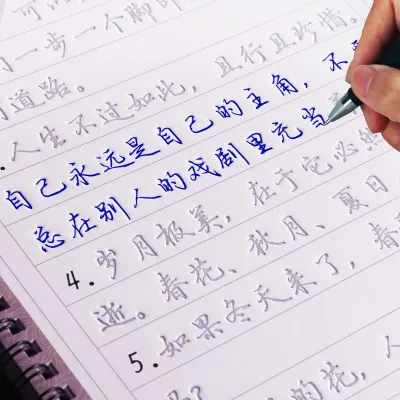 可以
一步一个脚印
道路。
人生不过如此,且行且珍惜。
自己永远是自己的主角,不要
总在别人的戏剧里充当
4.岁月极美,在于它必然
逝。春花、秋月、夏日
5.如果冬天来了,春
的花,人